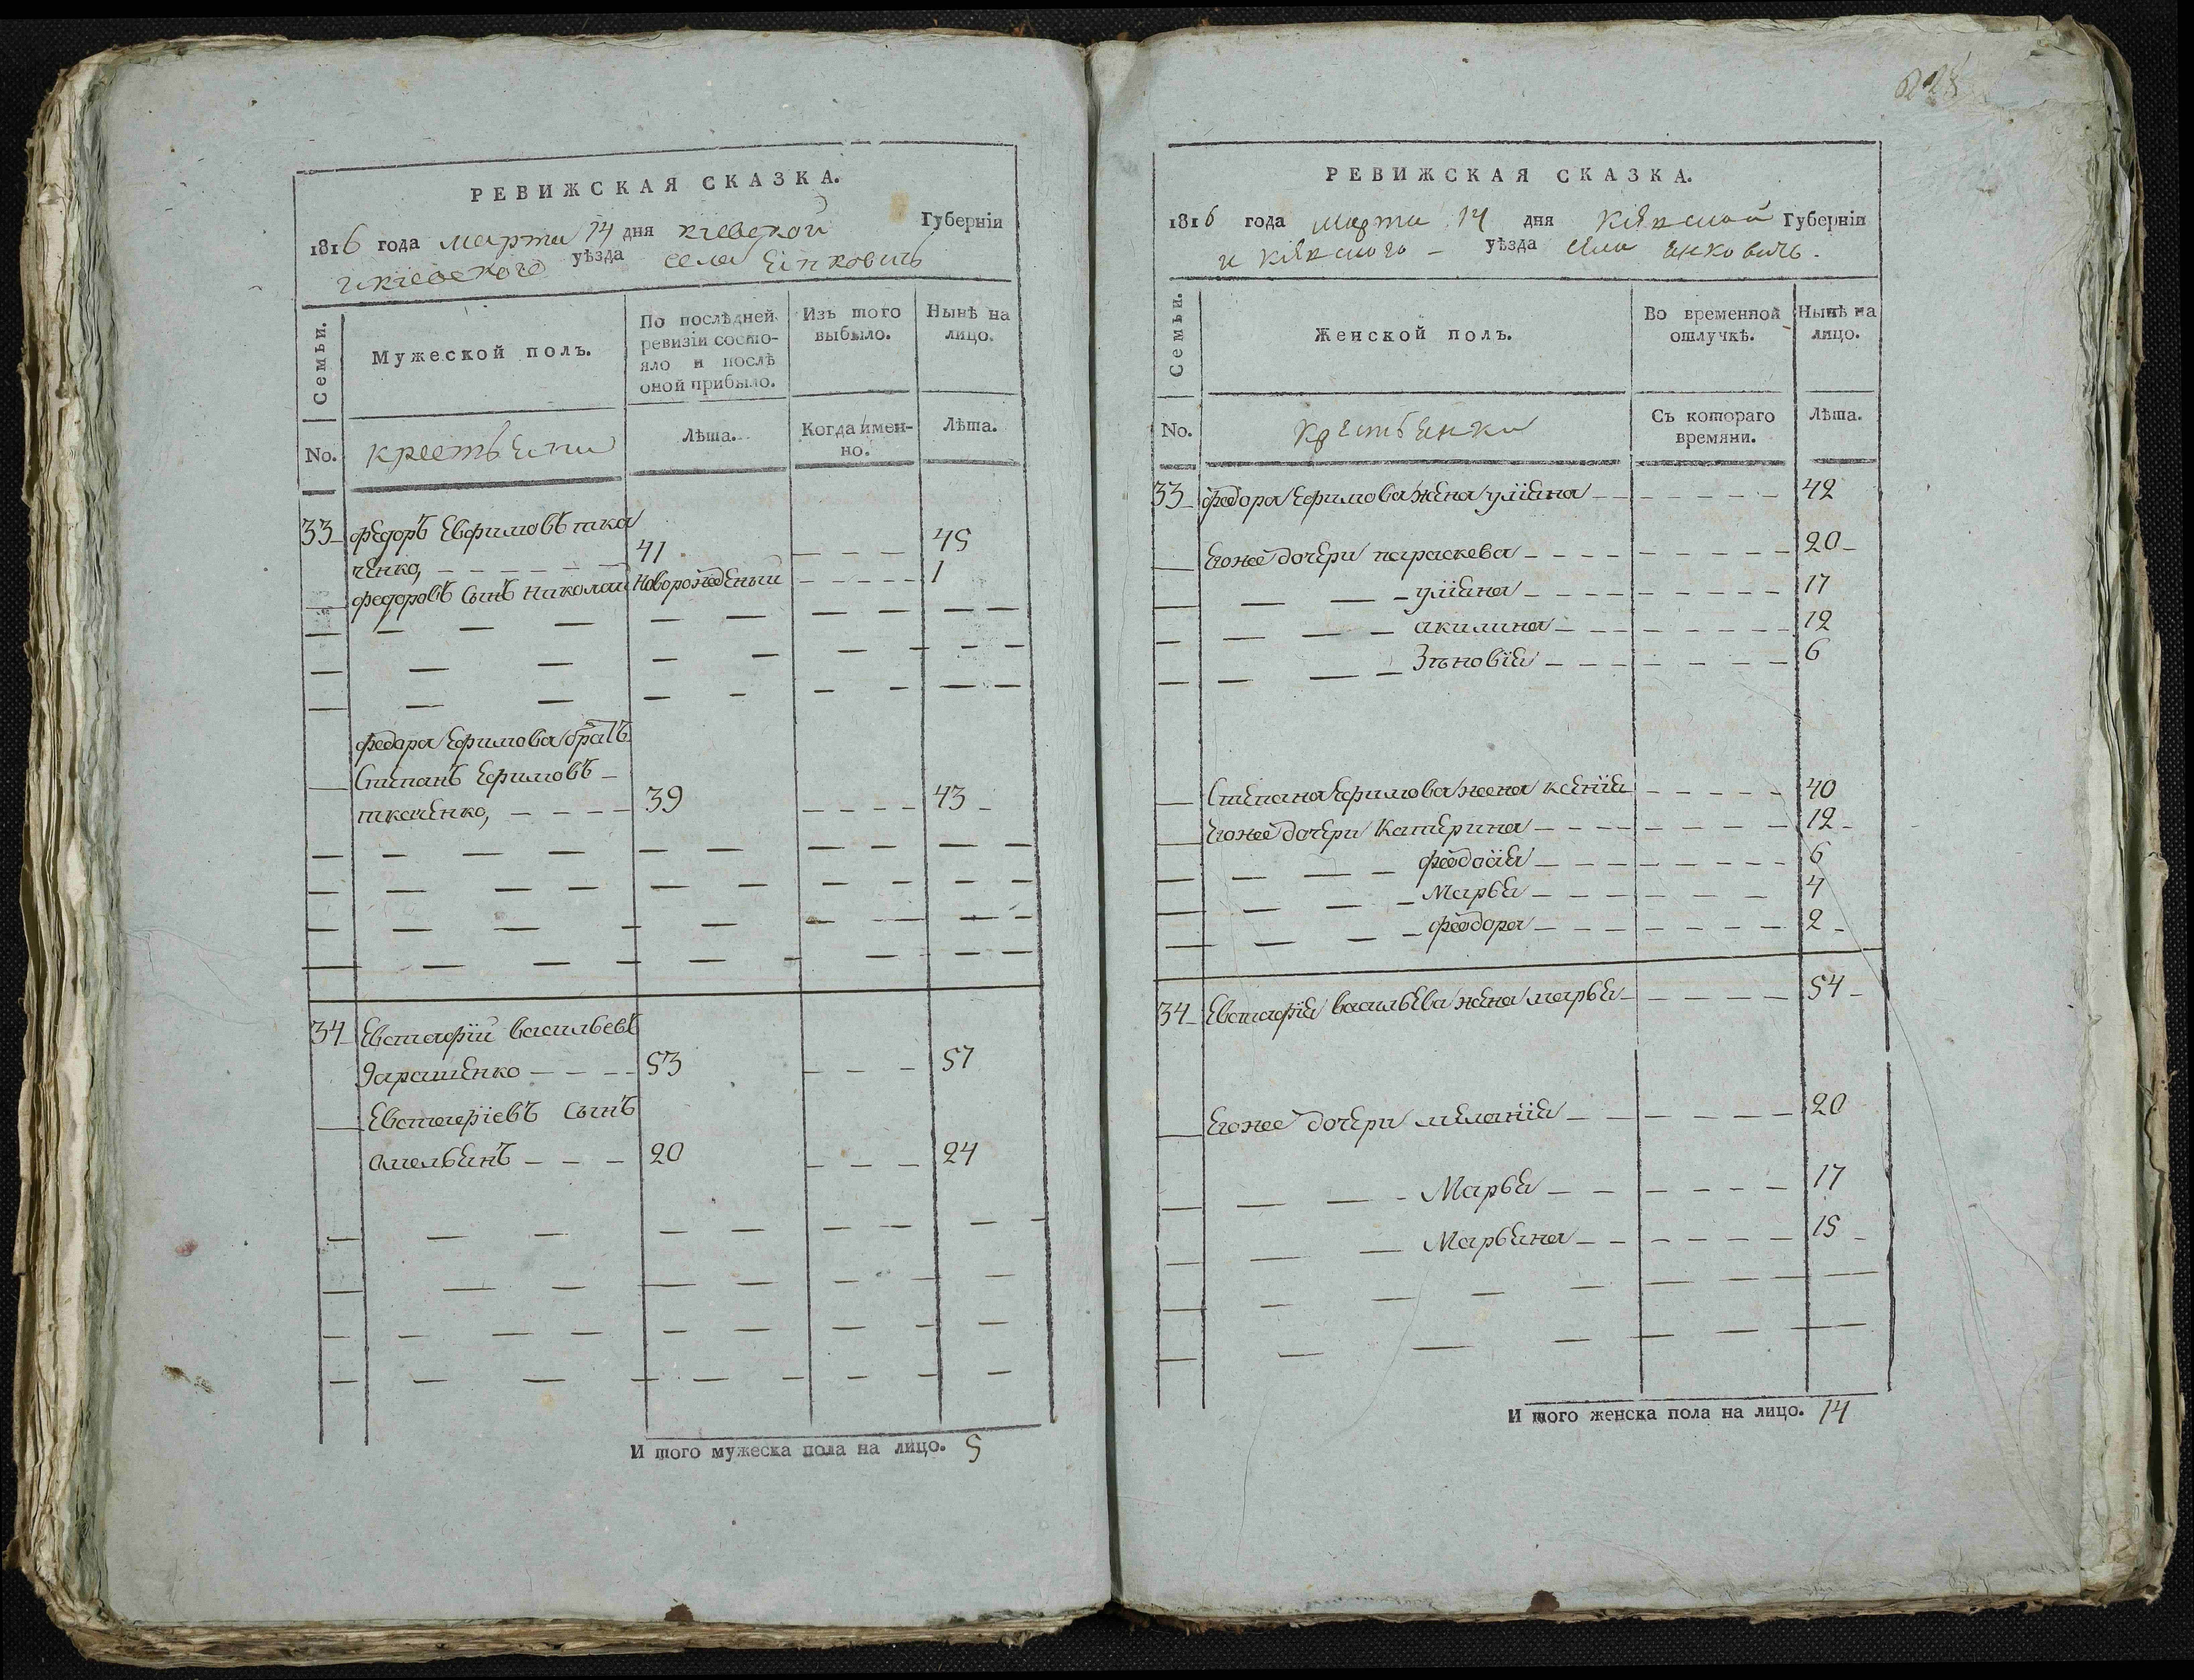 РЕВИЖСКАЯ СКАЗКА.
1816 года марта 14 дня киевской Губернїи
и киевского уѣзда села Янковичь
Семьи.
Мужеской полъ.
По послѣдней ревизїи состояло и послѣ оной прибыло.
Изъ того выбыло.
Нынѣ на лицо.
No.
крестьяни
Лѣта.
Когда именно.
Лѣта.
33 федоръ Евфимовъ тка
ченко, 41 45
федоровъ сынъ николай новорожденый 1
федора Ефимова братъ
Степанъ Ефимовъ
ткаченко, 39 43
34 Евстафїй васильевъ
Гаращенко 53 57
Евстафїевъ сынъ
Омельянъ 20 24
И того мужеска пола на лицо. 5
РЕВИЖСКАЯ СКАЗКА.
1816 года марта 14 дня Киевской Губернїи
и Киевского уѣзда села янковичь.
Семьи.
Женской полъ.
Во временной отлучкѣ.
Нынѣ на лицо.
No.
крестьянки
Съ котораго времяни.
Лѣта.
33 федора Ефимова жена улїяна 42
Егоже дочери параскева 20
улїяна 17
акилина 12
Зѣновїя 6
Степана Ефимова жена ксенїя 40
Егоже дочери Катерина 12
феодосїя 6
Марья 4
феодора 2
34 Евстафїя васильева жена марья 54
Егоже дочери меланїя 20
Марья 17
Марьяна 15
И того женска пола на лицо. 14